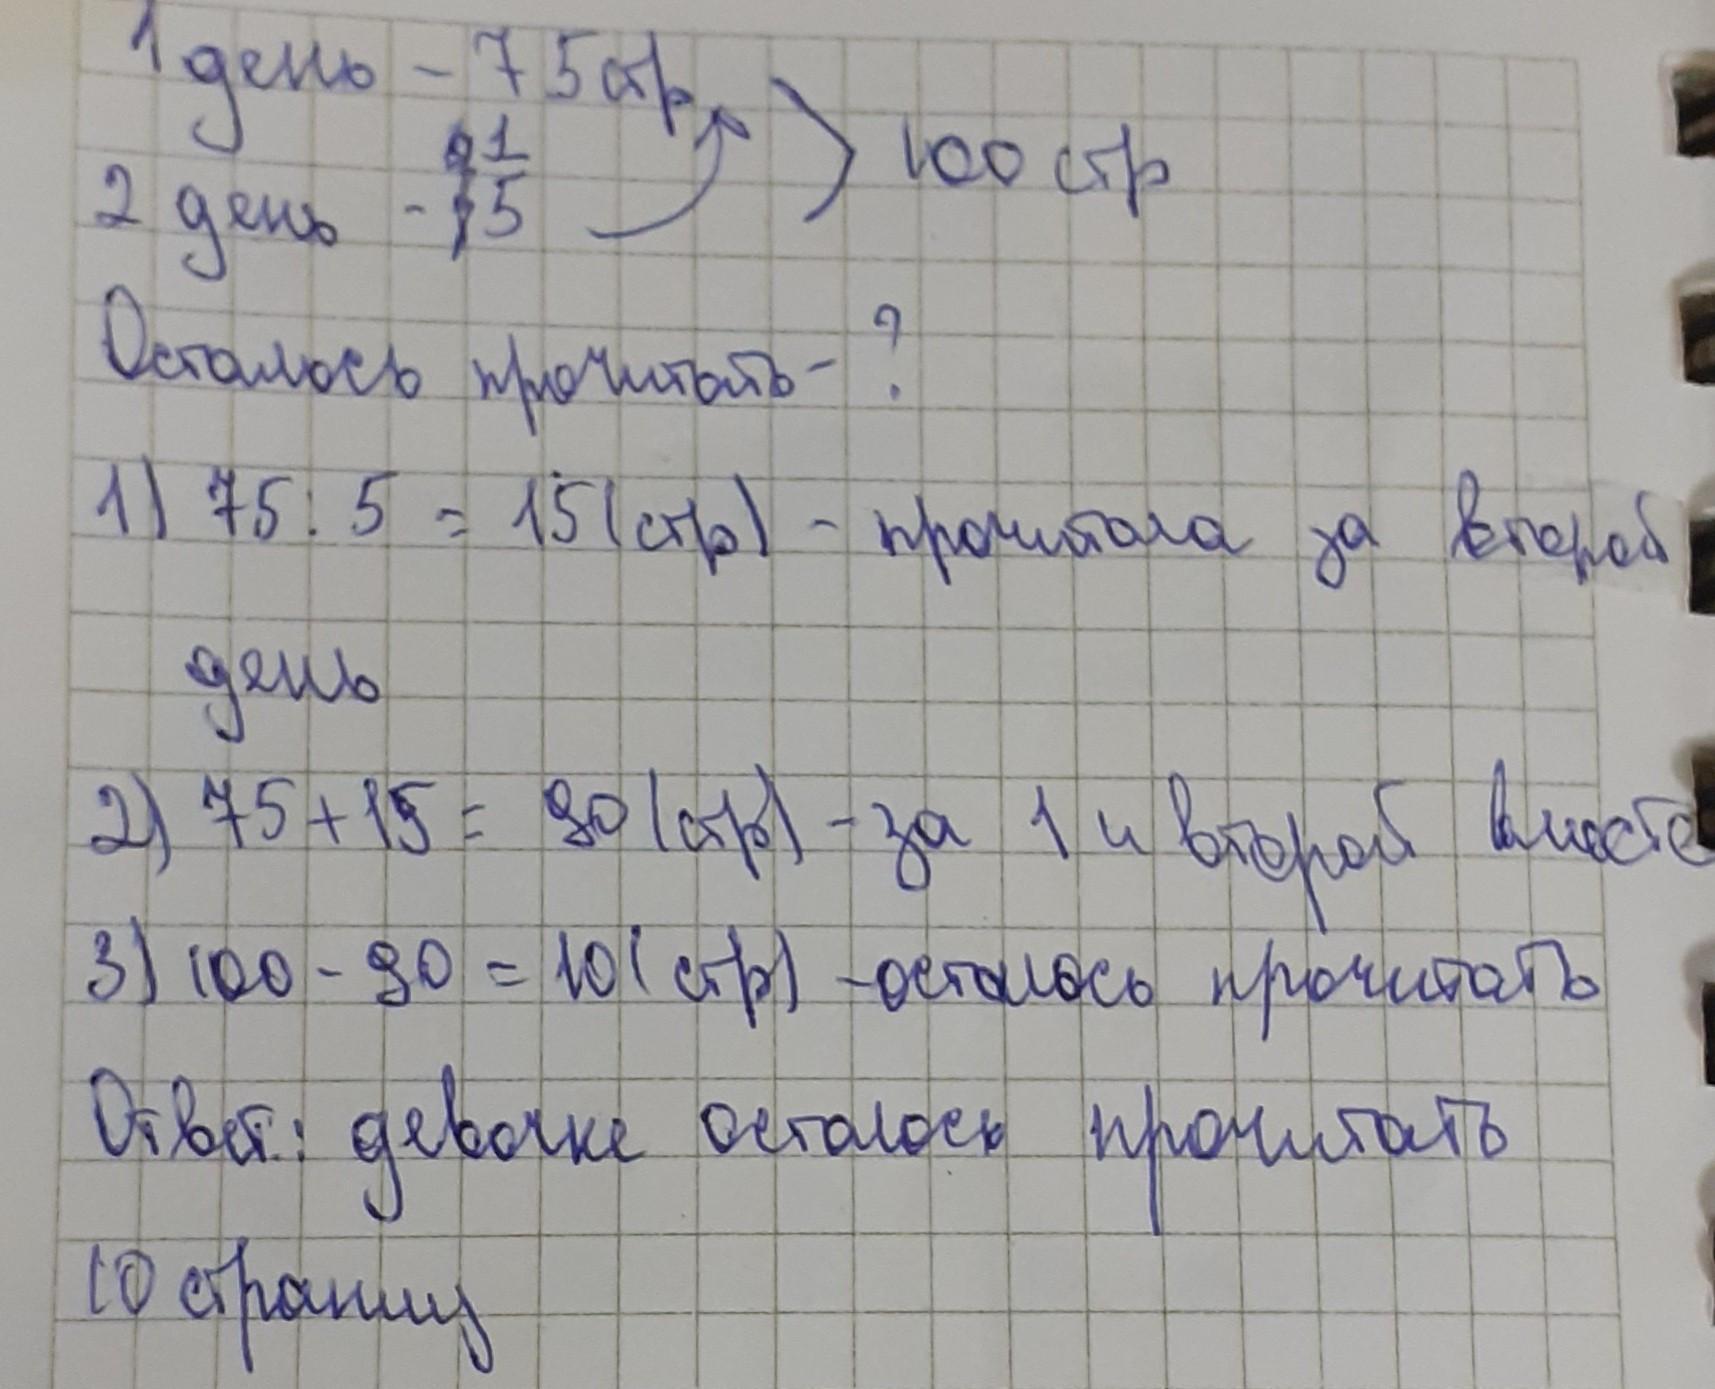 1 день - 75 стр
100 стр
2 день - 1/5
Осталось прочитать - ?
1) 75 : 5 = 15 (стр) - прочитала за второй
день
2) 75 + 15 = 90 (стр) - за 1 и второй вместе
3) 100 - 90 = 10 (стр) - осталось прочитать
Ответ: девочке осталось прочитать
10 страниц